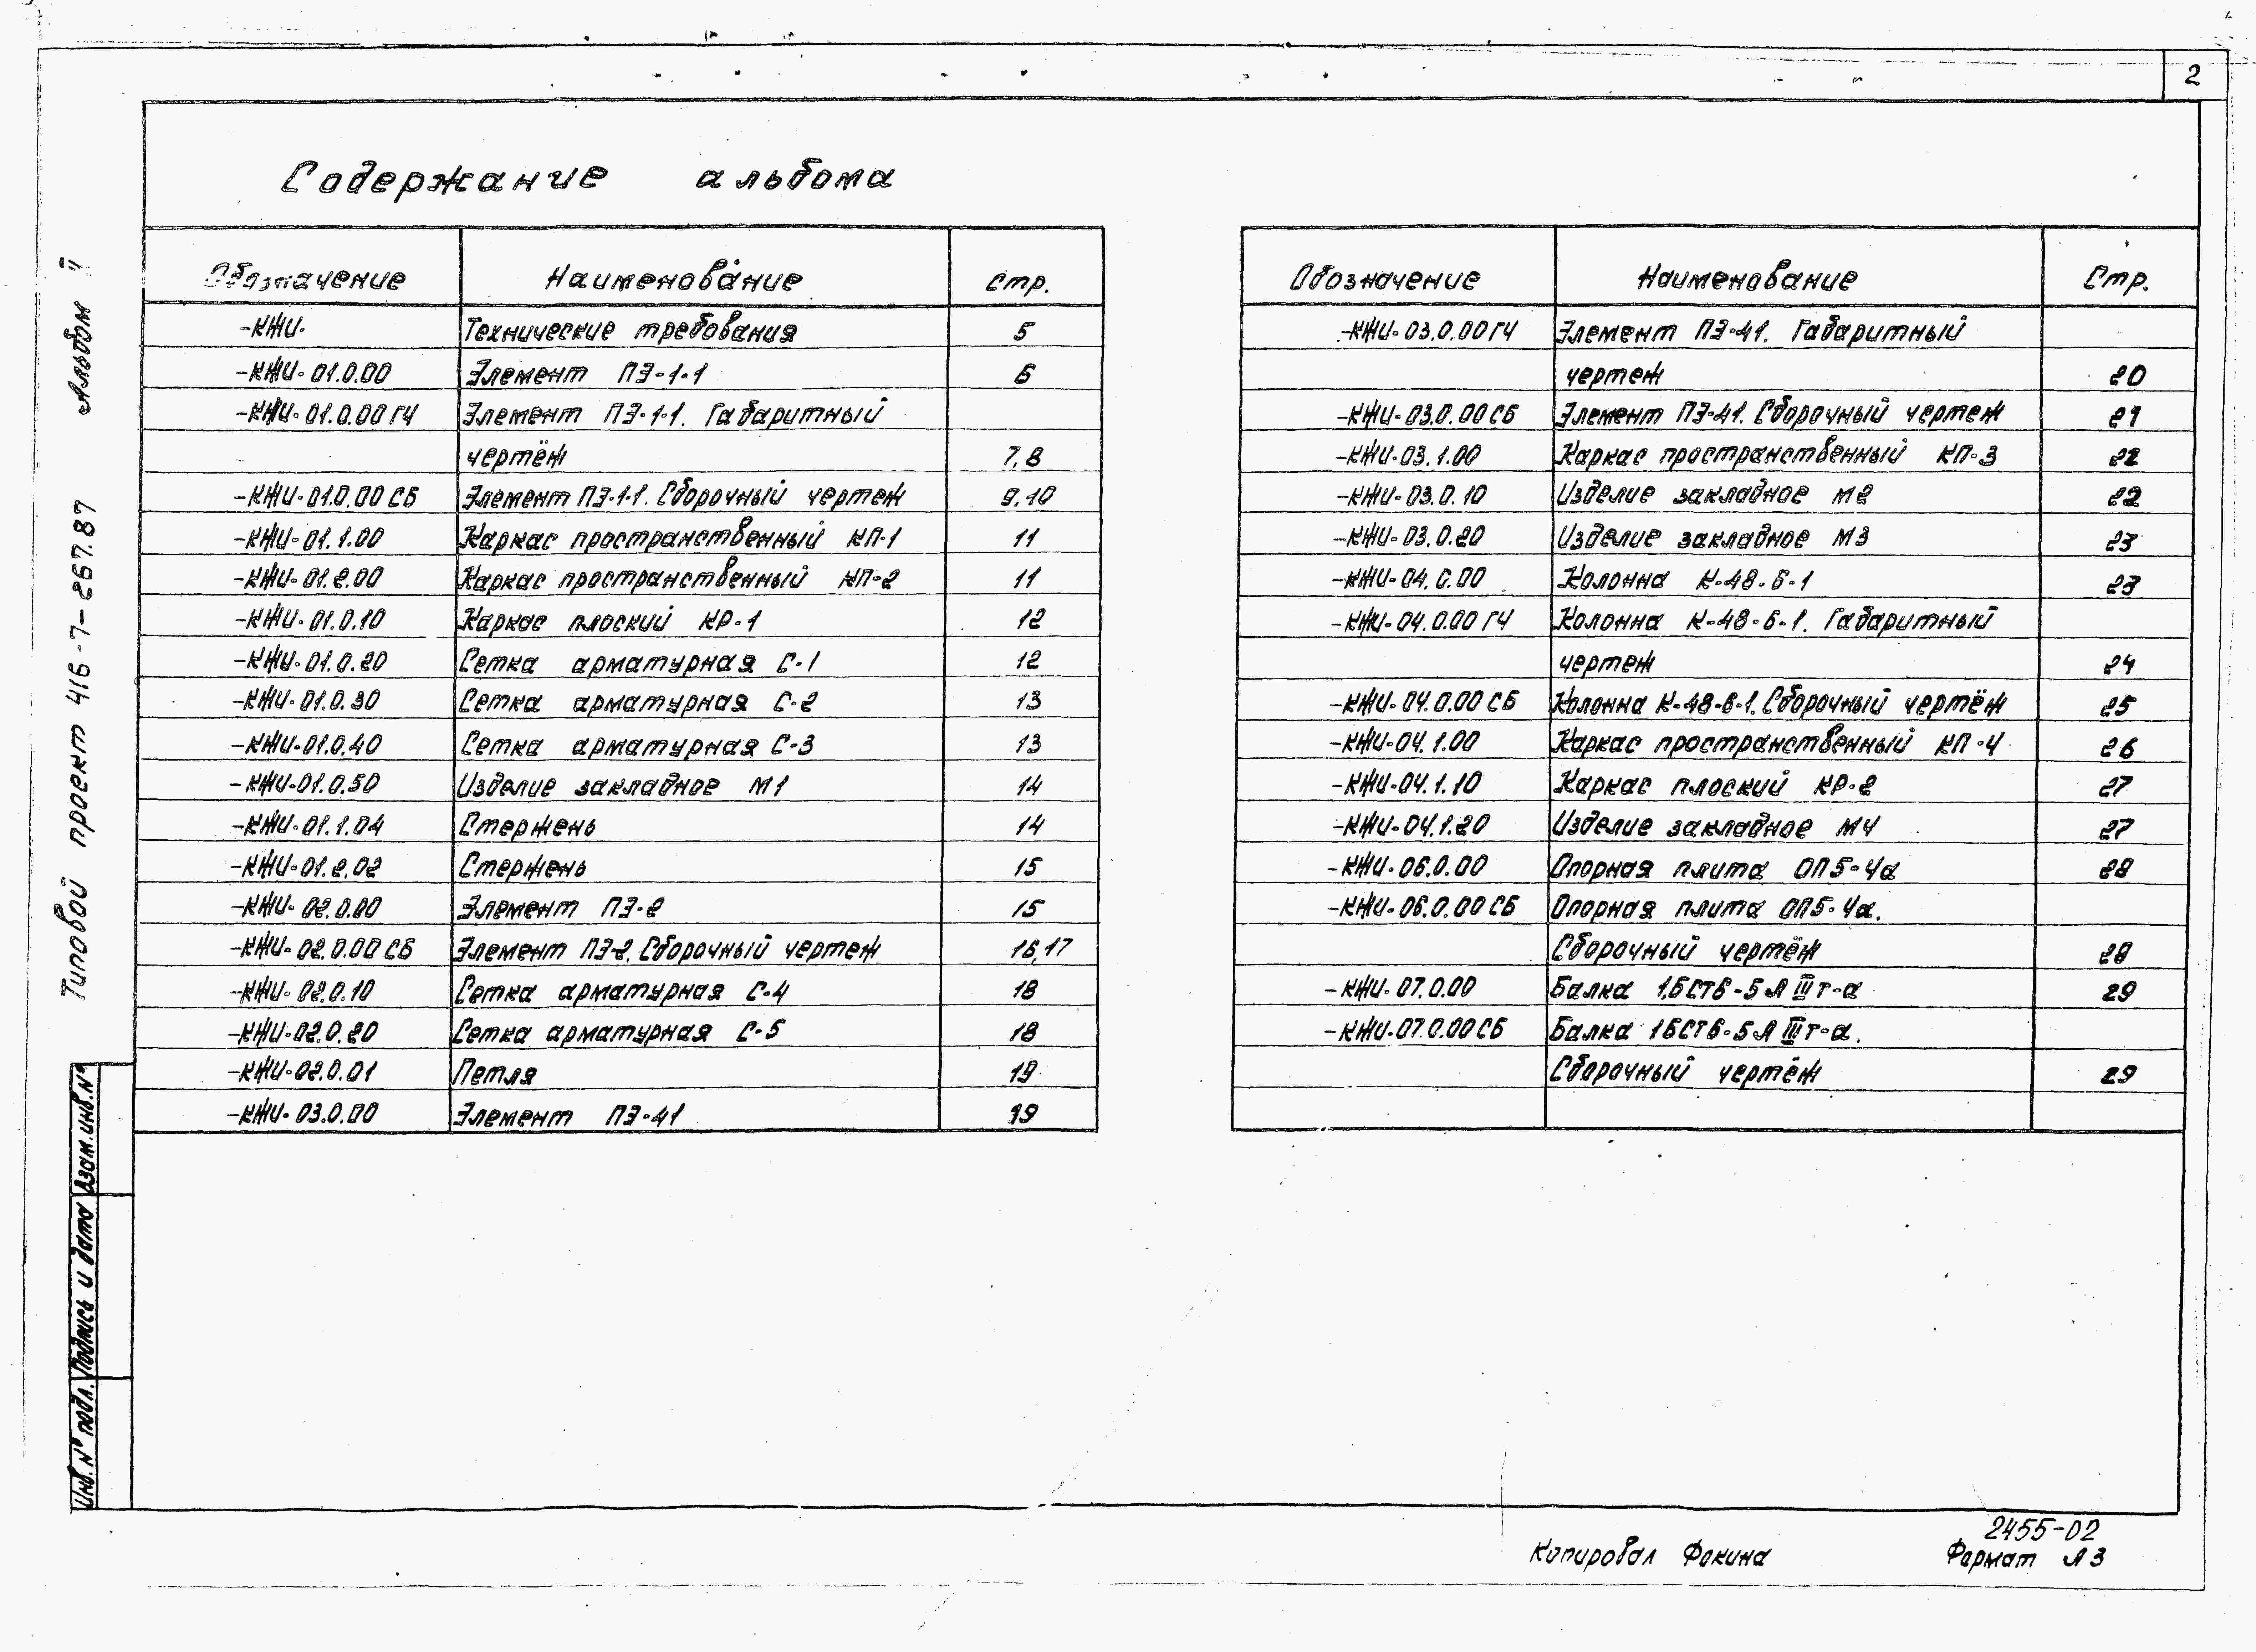 2
Содержание альбома
Обозначение Наименование Стр.
-КЖИ. Технические требования 5
-КЖИ-01.0.00 Элемент ПЭ-1-1 6
-КЖИ-01.0.00 ГЧ Элемент ПЭ-1-1. Габаритный
чертёж 7,8
-КЖИ-01.0.00 СБ Элемент ПЭ-1-1. Сборочный чертеж 9,10
-КЖИ-01.1.00 Каркас пространственный КП-1 11
-КЖИ-01.2.00 Каркас пространственный КП-2 11
-КЖИ-01.0.10 Каркас плоский КР-1 12
-КЖИ-01.0.20 Сетка арматурная С-1 12
-КЖИ-01.0.30 Сетка арматурная С-2 13
-КЖИ-01.0.40 Сетка арматурная С-3 13
-КЖИ-01.0.50 Изделие закладное М1 14
-КЖИ-01.1.04 Стержень 14
-КЖИ-01.2.02 Стержень 15
-КЖИ-02.0.00 Элемент ПЭ-2 15
-КЖИ-02.0.00 СБ Элемент ПЭ-2. Сборочный чертеж 16,17
-КЖИ-02.0.10 Сетка арматурная С-4 18
-КЖИ-02.0.20 Сетка арматурная С-5 18
-КЖИ-02.0.01 Петля 19
-КЖИ-03.0.00 Элемент ПЭ-41 19
Обозначение Наименование Стр.
-КЖИ-03.0.00 ГЧ Элемент ПЭ-41. Габаритный
чертеж 20
-КЖИ-03.0.00 СБ Элемент ПЭ-41. Сборочный чертеж 21
-КЖИ-03.1.00 Каркас пространственный КП-3 22
-КЖИ-03.0.10 Изделие закладное М2 22
-КЖИ-03.0.20 Изделие закладное М3 23
-КЖИ-04.0.00 Колонна К-48-6-1 23
-КЖИ-04.0.00 ГЧ Колонна К-48-6-1. Габаритный
чертеж 24
-КЖИ-04.0.00 СБ Колонна К-48-6-1. Сборочный чертёж 25
-КЖИ-04.1.00 Каркас пространственный КП-4 26
-КЖИ-04.1.10 Каркас плоский КР-2 27
-КЖИ-04.1.20 Изделие закладное М4 27
-КЖИ-06.0.00 Опорная плита ОП5-4а 28
-КЖИ-06.0.00 СБ Опорная плита ОП5-4а.
Сборочный чертёж 28
-КЖИ-07.0.00 Балка 1БСТ6-5АIIIт-а 29
-КЖИ-07.0.00 СБ Балка 1БСТ6-5АIIIт-а.
Сборочный чертёж 29
Типовой проект 416-7-267.87 Альбом II
Взам.инв.№
Подпись и дата
Инв.№ подл.
2455-02
Копировал Фокина Формат А3